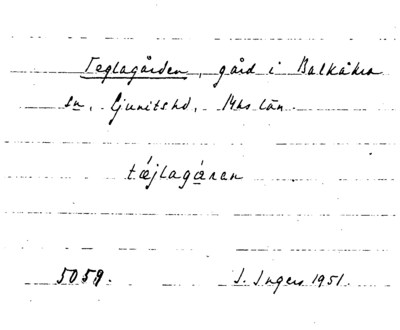 Teglagården, gård i Balkåkra
sn, Ljunits hd, Mhs län.
tǽjlagá̱ren
5059. I. Ingers 1951.